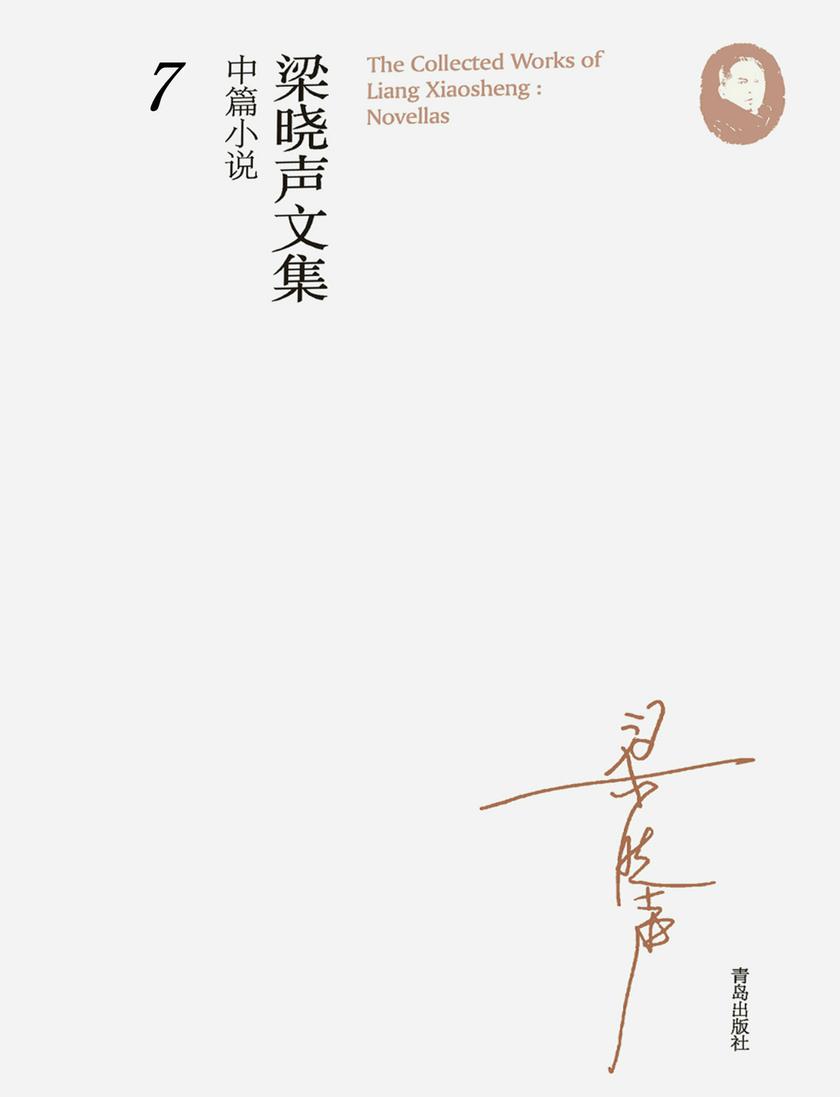 7
中篇小说
梁晓声文集
The Collected Works of
Liang Xiaosheng :
Novellas
梁晓声
青岛出版社